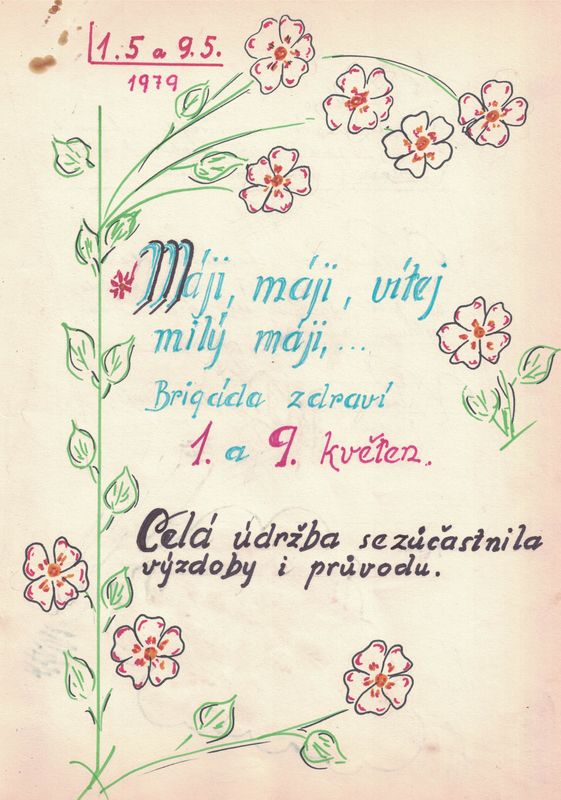 1.5 a 9.5.
1979
Máji, máji, vítej
milý máji,...
Brigáda zdraví
1. a 9. květen.
Celá údržba se zúčastnila
výzdoby i průvodu.